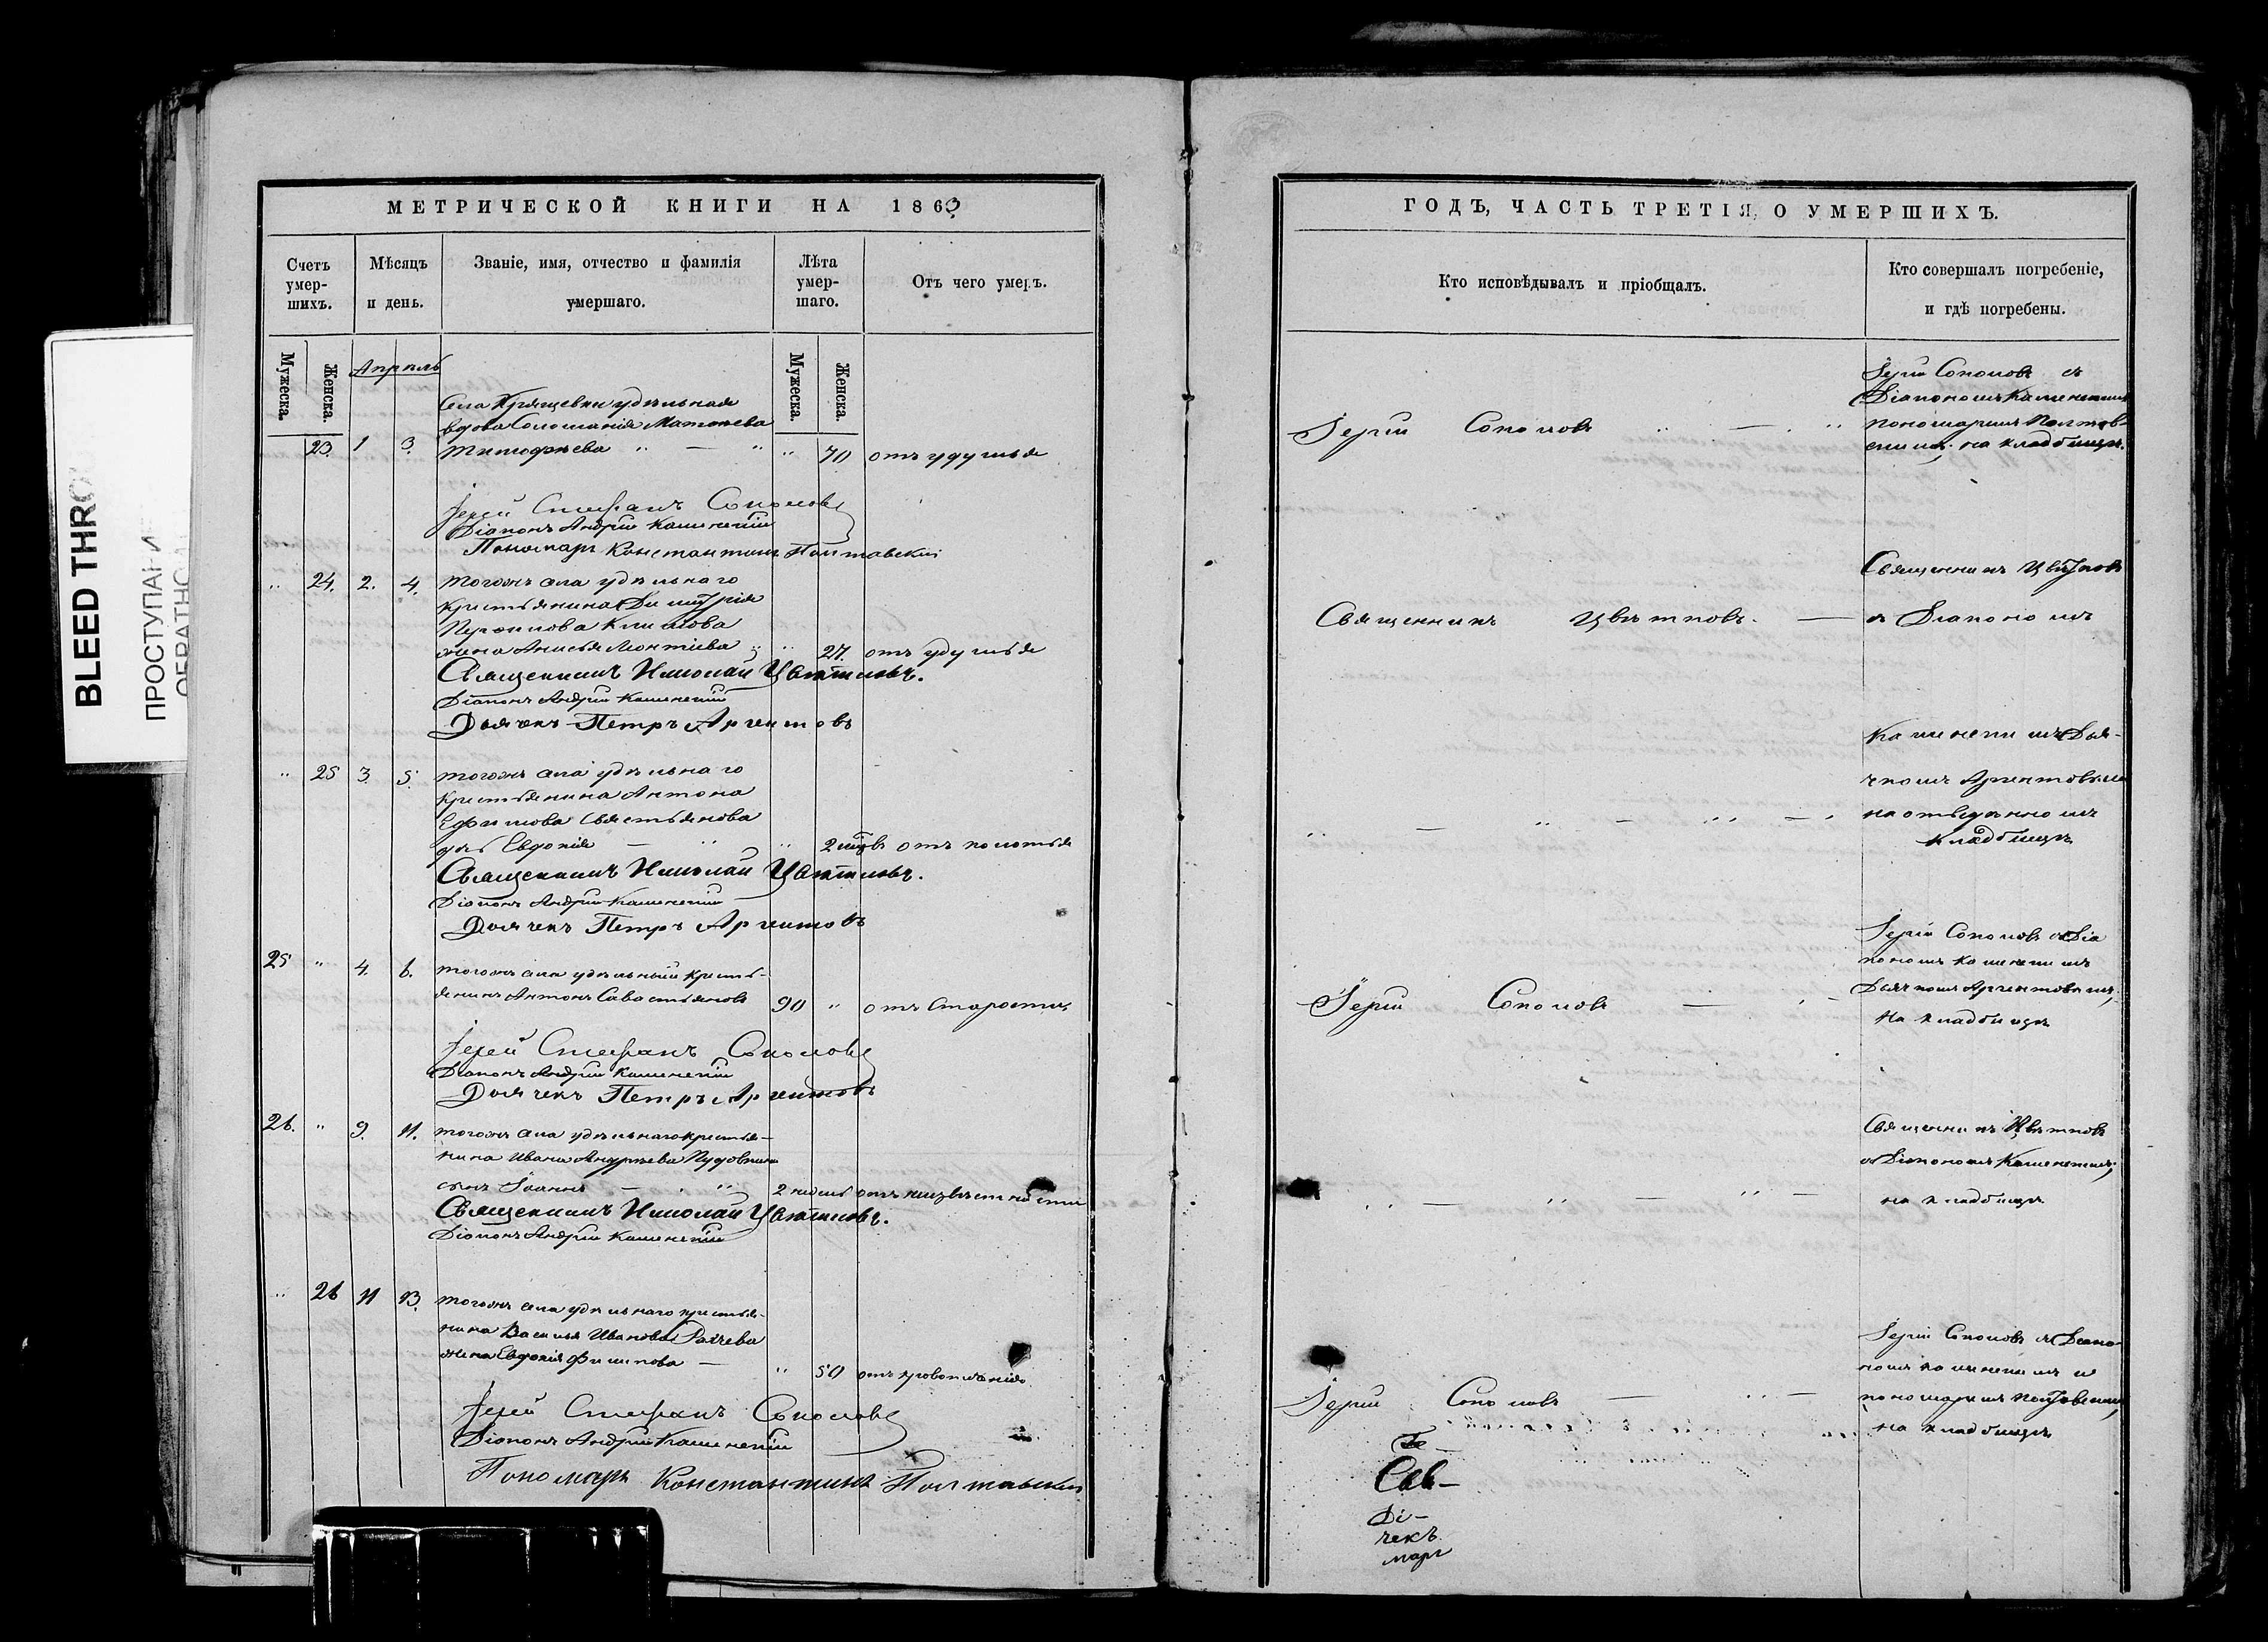 BLEED THRO
ПРОСТУПАНИ
ОБРАТНО
МЕТРИЧЕСКОЙ КНИГИ НА 1863
Счетъ умер-шихъ.
Мѣсяцъ и день.
Званіе, имя, отчество и фамилія умершаго.
Лѣта умер-шаго.
Отъ чего умеръ.
Мужеска.
Женска.
Мужеска.
Женска.
Апрѣль
Села Крящевки удѣльная
вдова Соломанія Матвѣева
23 1 3. Тимофѣева " — " " 70 отъ удушья
Іерей Стефанъ Соколовъ
Діаконъ Андрей Каменскій
Пономарь Константинъ Полтавскій
" 24. 2. 4. тогожъ села удѣльнаго
крестьянина Димитрія
Климова
жена Анисья Леонтіева " 27. отъ удушья
Священникъ Николай Цвѣтковъ.
Діаконъ Андрей Каменскій
Дьячекъ Петръ Аргентовъ
" 25 3. 5. тогожъ села удѣльнаго
крестьянина Антона
Ефимова Савастьянова
дочь Евдокія — " " 2 отъ колотья
Священникъ Николай Цвѣтковъ.
Діаконъ Андрей Каменскій
Дьячекъ Петръ Аргентовъ
25 " 4. 6. тогожъ села удѣльный кресть-
янинъ Антонъ Савастьяновъ 90 " отъ старости
Іерей Стефанъ Соколовъ
Діаконъ Андрей Каменскій
Дьячекъ Петръ Аргентовъ
26. " 9. 11. тогожъ села удѣльнаго крестья-
нина Ивана Андреева Пудовкина
сынъ Іоаннъ — " 2 недѣль отъ неизвѣстности
Священникъ Николай Цвѣтковъ.
Діаконъ Андрей Каменскій
" 26 11 13. тогожъ села удѣльнаго крестья-
нина Василья Иванова
жена Евдокія Филипова — " 50 отъ кровотеченія
Іерей Стефанъ Соколовъ
Діаконъ Андрей Каменскій
Пономарь Константинъ Полтавскій
ГОДЪ, ЧАСТЬ ТРЕТІЯ, О УМЕРШИХЪ.
Кто исповѣдывалъ и пріобщалъ.
Кто совершалъ погребеніе, и гдѣ погребены.
Іерей Соколовъ " — "
Іерей Соколовъ съ
Діакономъ Каменскимъ
пономаремъ Полтав-
скимъ, на кладбищѣ.
Священникъ Цвѣтковъ. —
Священникъ Цвѣтковъ
съ Діакономъ
Каменскимъ Дья-
чкомъ Аргентовымъ
на отведенномъ
кладбищѣ
" — " — " —
Іерей Соколовъ —
Іерей Соколовъ съ Діа
кономъ Каменскимъ
Дьячкомъ Аргентовымъ,
на кладбищѣ
" — " — " —
Священникъ Цвѣтковъ
съ Діакономъ Каменскимъ,
на кладбищѣ
Іерей Соколовъ — " —
Іерей Соколовъ съ Діако-
номъ Каменскимъ и
пономаремъ Полтавскимъ,
на кладбищѣ
Свя-
Ді-
чекъ
марь